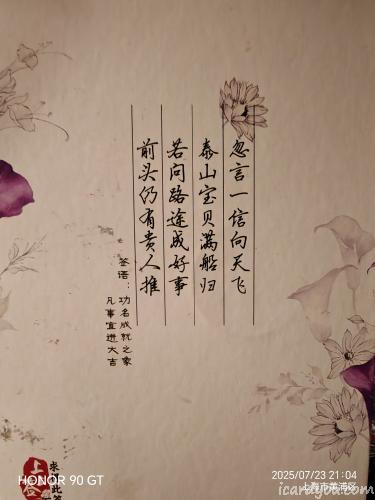 忽言一信向天飞
泰山宝贝满船归
若问路途成好事
前头仍有贵人推
签语：功名成就之象
凡事宜进大吉
上
HONOR 90 GT
2025/07/23 21:04
上海市黄浦区
icarayou.com